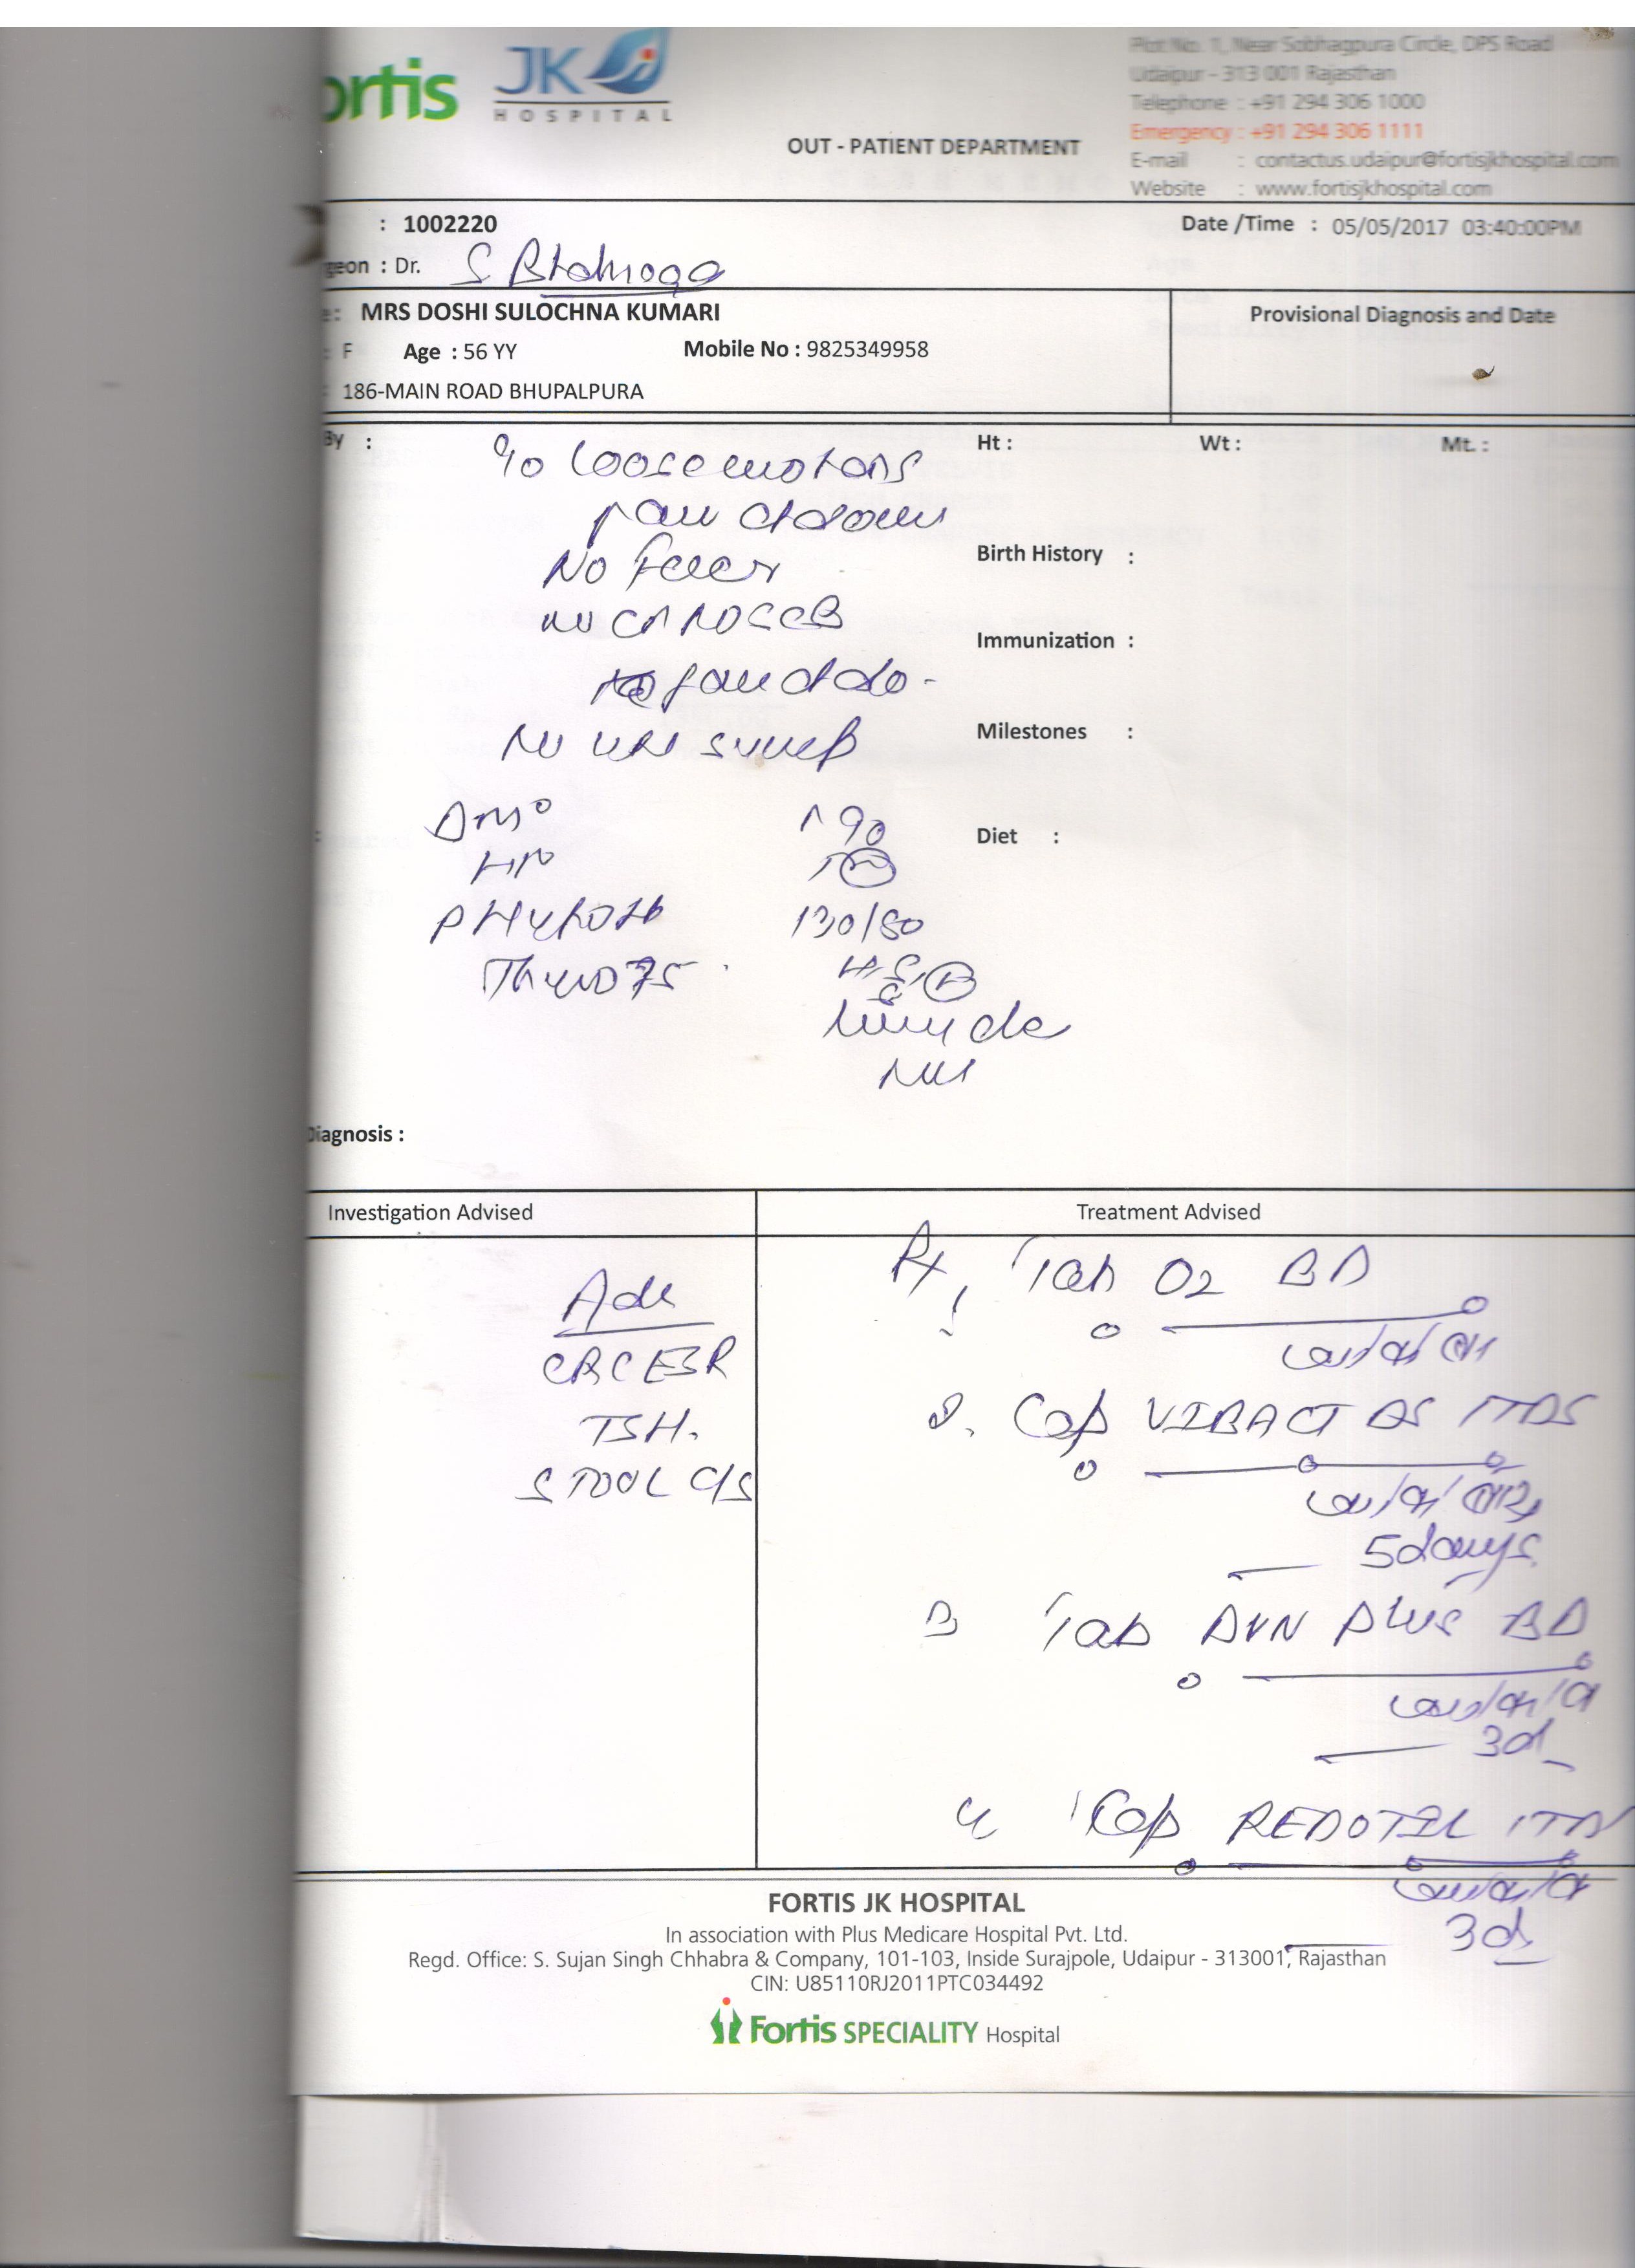 ortis JK
HOSPITAL
OUT - PATIENT DEPARTMENT
Plot No. 1, Near Sobhagpura Circle, DPS Road
Udaipur - 313 001 Rajasthan
Telephone : +91 294 306 1000
Emergency : +91 294 306 1111
E-mail : contactus.udaipur@fortisjkhospital.com
Website : www.fortisjkhospital.com
: 1002220
Date /Time : 05/05/2017 03:40:00PM
geon : Dr. S
e: MRS DOSHI SULOCHNA KUMARI
Provisional Diagnosis and Date
: F Age : 56 YY Mobile No : 9825349958
: 186-MAIN ROAD BHUPALPURA
By :
Ht : Wt : Mt. :
c/o loose motions
pain abdomen
No fever
Birth History :
Immunization :
pain abdo -
Milestones :
Diet :
90
130/80
Thyro 75
Diagnosis :
Investigation Advised
Treatment Advised
Adv
CBC ESR
TSH.
STOOL C/S
Rx, Tab O2 BD
2. Cap VIBACT DS 1 TDS
5 days
3 Tab DVN Plus BD
3d
4 Cap REDOTIL 1 TD
3d
FORTIS JK HOSPITAL
In association with Plus Medicare Hospital Pvt. Ltd.
Regd. Office: S. Sujan Singh Chhabra & Company, 101-103, Inside Surajpole, Udaipur - 313001, Rajasthan
CIN: U85110RJ2011PTC034492
Fortis SPECIALITY Hospital